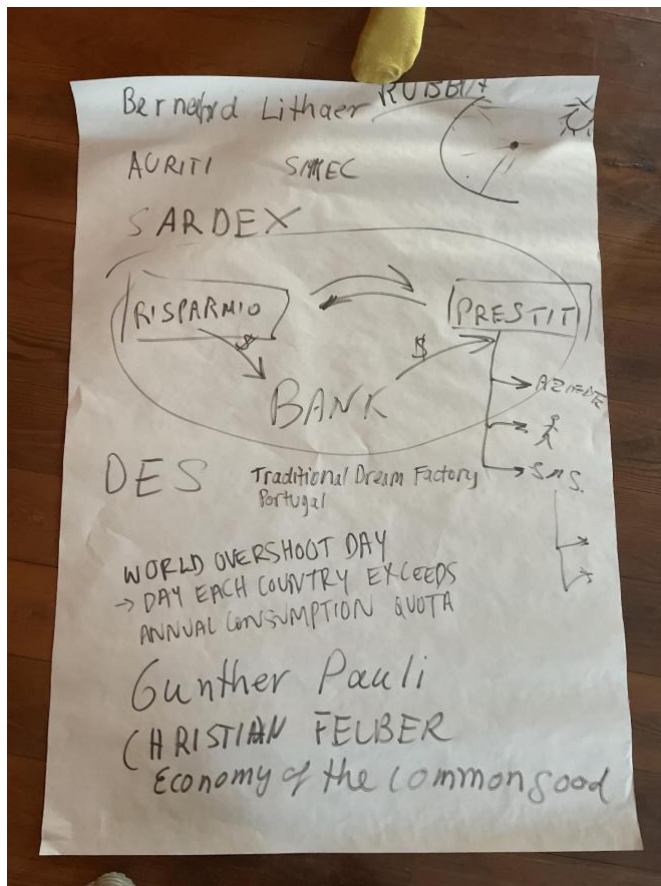 Bernard Lithaer
AURITI SIMEC
SARDEX
RISPARMIO
PRESTITI
$
$
BANK
AZIENDE
DES
Traditional Dream Factory
Portugal
WORLD OVERSHOOT DAY
→ DAY EACH COUNTRY EXCEEDS
ANNUAL CONSUMPTION QUOTA
Gunther Pauli
CHRISTIAN FELBER
Economy of the common good